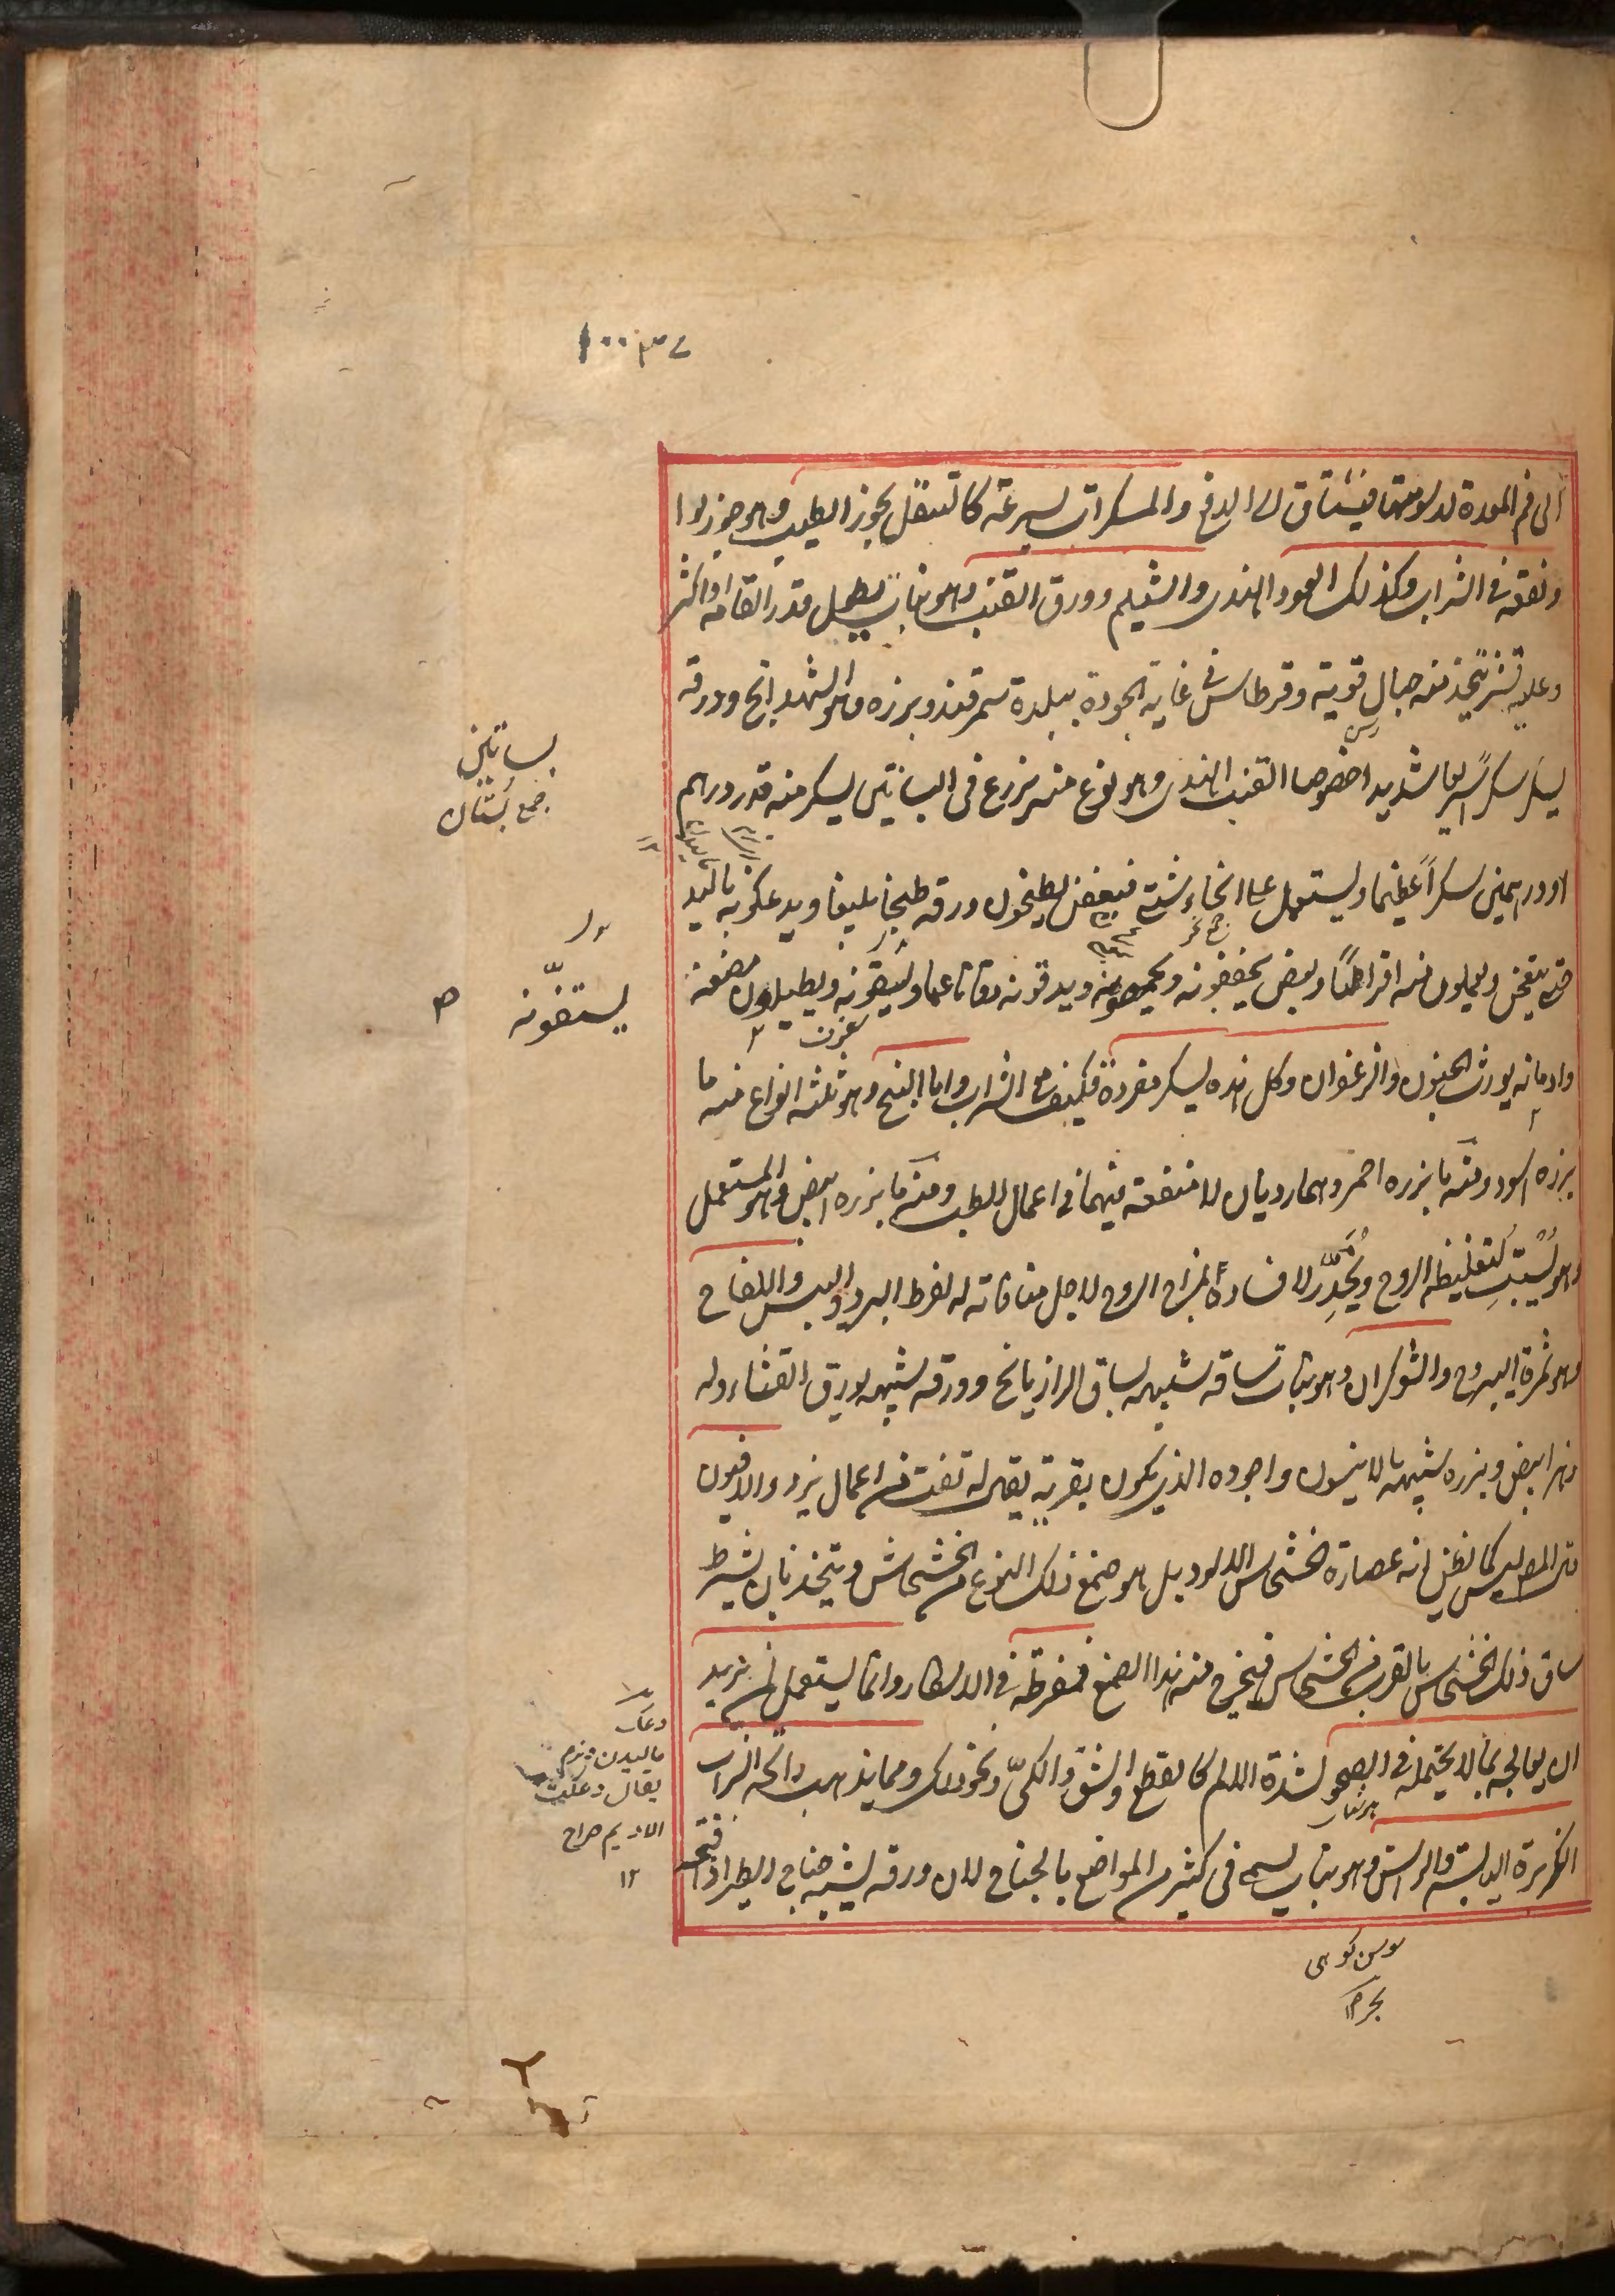 ١٠٠٣٧
الى فم المعدة لدسومتها فيشتاق الى الدفع والمسكرات بسرعة كالتنقل بجوز الطيب وهو جوز بوا
ونقعه فى الشراب وكذلك العود الهندى والشيلم وورق القنب وهو نبات يطول قدر القامة او اكثر
وعليه قشر يتخذ منه حبال قوية وقرطاس فى غاية الجودة ببلدة سمرقند وبزره هو الشهدانج وورقه
يسكر سكرا سريعا شديدا خصوصا القنب الهندى وهو نوع منه يزرع فى البساتين يسكر منه قدر درهم
او درهمين سكراً عظيما ويستعمل على انحاء شتى فبعض يطبخون ورقه طبخا بليغا ويدعكونه باليد
حتى يتعجن ويعملون منه اقراطا وبعض يجففونه ويحمصونه ويدقونه دقا ناعما ويستفونه ويطيلون مضغه
وادمانه يورث الجنون والزعفران وكل هذه يسكر مفردة فكيف مع الشراب واما البنج وهو ثلثة انواع منه ما
بزره اسود ومنه ما بزره احمر وهما رديان لا منفعة فيهما فى اعمال الطب ومنه ما بزره ابيض وهو المستعمل
وهو يُسْبِت لتغليظه الروح ويُخَدِّر لافساده لمزاج الروح لاجل منافاته له لفرط البرد واليبس واللفاح
وهو ثمرة اليبروح والشوكران وهو نبات ساقه شبيه بساق الرازيانج وورقه شبيه بورق القثاء وله
زهر ابيض وبزره شبيه بالانيسون واجوده الذى يكون بقرية يقال له تفت من اعمال يزد والافيون
المصرى ليس كما يظن انه عصارة الخشخاش الاسود بل هو صمغ ذلك النوع من الخشخاش ويتخذ بان يشرط
ساق ذلك الخشخاش بالقرب من الخشخاش فيخرج منه هذا الصمغ مفرطة فى الاسكار وانما يستعمل لمن يريد
ان يعالجه بما لا يحتمله فى الصحو لشدة الالم كالقطع والشق والكىّ ونحو ذلك ومما يذهب رائحة الشراب
الكزبرة اليابسة والراسن وهو نبات يسمى فى كثير من المواضع بالجناح لان ورقه يشبه جناح الطير اذا فتحه
بساتين
جمع بُستان
يستفّونه
دعك
ماليدن ونرم
يقال دعكت
الاديم صراح
١٢
سوسن كوهى
بحر